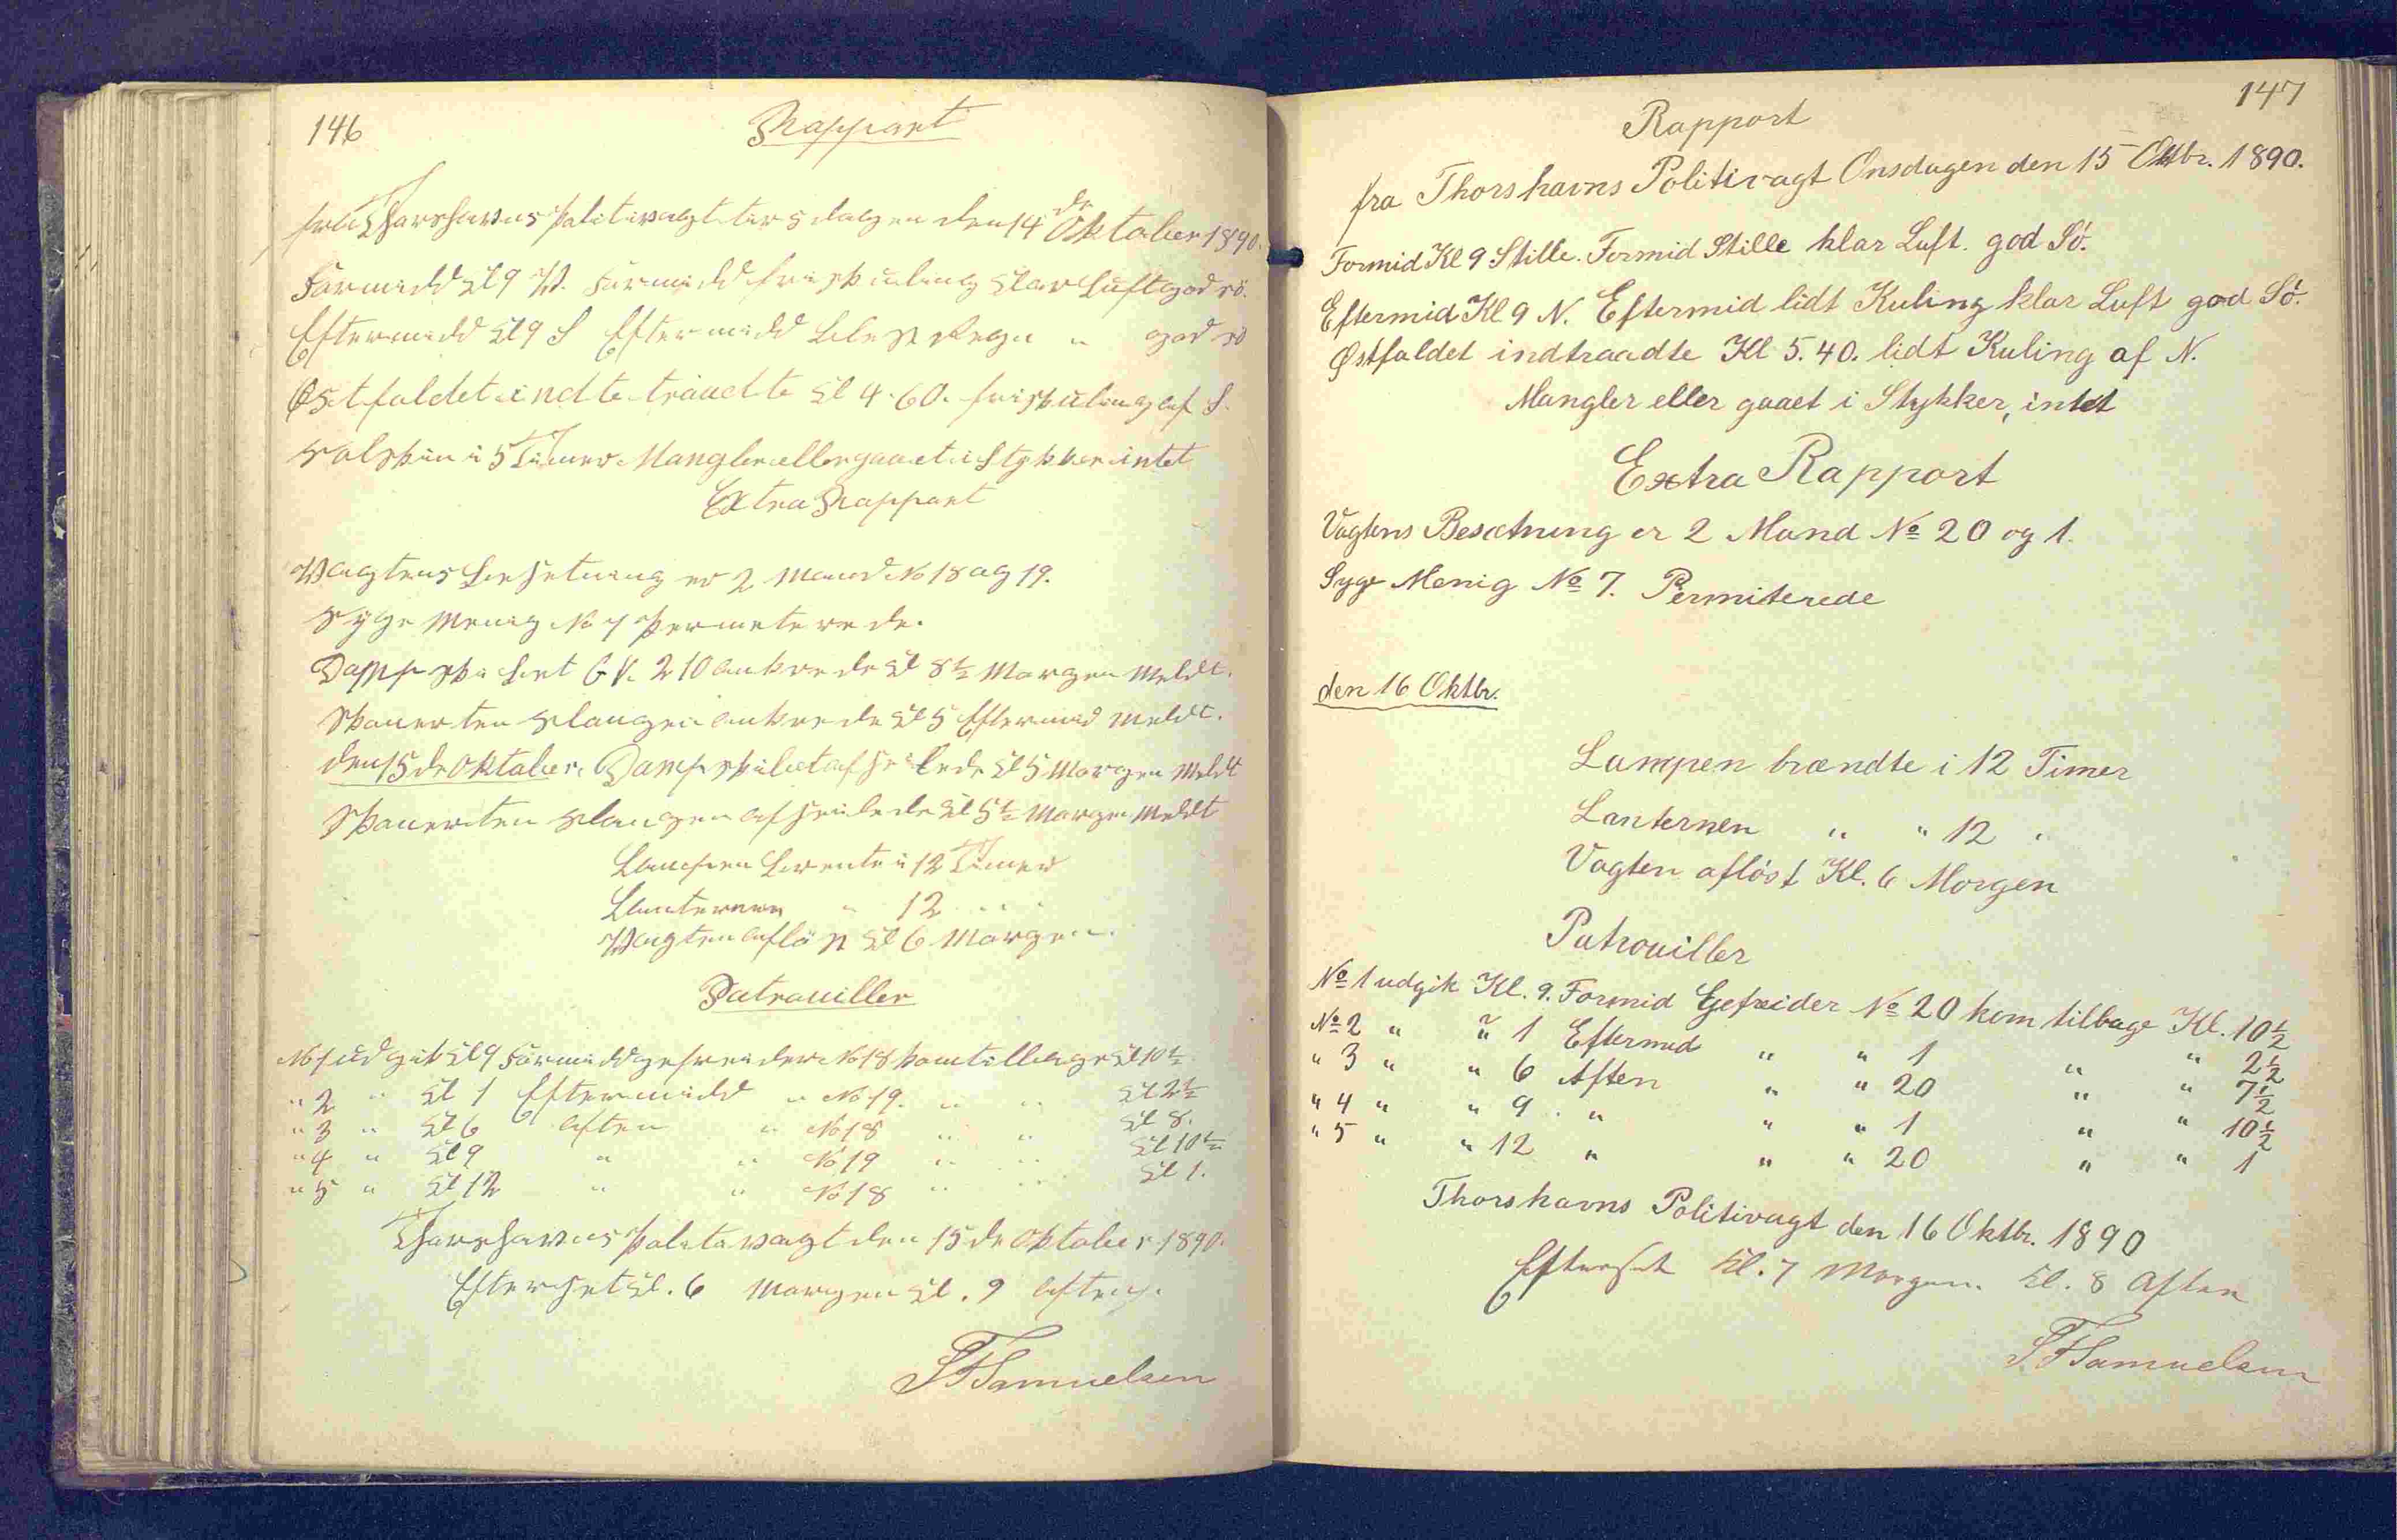 146
Rapport
fra Thorshavns Politivagt tirsdagen den 14 de Oktober 1890.
Formidd Kl 9 V. Formidd frisk uling klar Luft god sö.
Eftermidd Kl 9 S Eftermidd Regn " god sö
Østfaldet indte traadte Kl 4.60. frisk uling af S.
Solskin i 5 Timer Mangler eller gaaet i Stykker intet
Extra Rapport
Wagtens besetning er 2 Mand No 18 og 19.
Syge Menig No 7 Permeterede.
Dampskibet 210 ankrede Kl 8½ Morgen Meldt.
Skonerten Slangen ankrede Kl 5 Eftermid Meldt.
den 15 de Oktober. Dampskibet afseilede Kl 5 Morgen Meldt
Skonerten Slangen afseilede Kl 5½ Morgen Meldt
Lampen brente i 12 Timer
Lanternen " 12 " "
Wagten aflöst Kl 6 Morgen.
Patrouiller
No 1 udgik Kl 9 Formidd gefreider No 18 kom tilbage Kl 10½
" 2 " Kl 1 Eftermidd " No 19. " " Kl 2½
" 3 " Kl 6 aften " No 18 " " Kl 8.
" 4 " Kl 9 " " No 19 " " Kl 10½
" 5 " Kl 12 " " No 18 " " Kl 1.
Thorshavns Politivagt den 15 de Oktober 1890.
Efterset Kl. 6 Morgen Kl. 9 aften.
Samuelsen
147
Rapport
fra Thorshavns Politivagt Onsdagen den 15 Oktbr. 1890.
Formid Kl 9 Stille. Formid Stille klar Luft. god Sö.
Eftermid Kl. 9 N. Eftermid lidt Kuling klar Luft god Sö.
Østfaldet indtraadte Kl 5.40. lidt Kuling af N.
Mangler eller gaaet i Stykker, intet
Extra Rapport
Vagtens Besætning er 2 Mand No 20 og 1.
Syge Menig No 7. Permiterede
den 16 Oktbr.
Lampen brændte i 12 Timer
Lanternen " " 12 "
Vagten aflöst Kl. 6 Morgen
Patrouiller
No 1 udgik Kl. 9. Formid Gefreider No 20 kom tilbage Kl. 10½
No 2 " " 1 Eftermid " " 1 " " 2½
" 3 " " 6 Aften " " 20 " " 7½
" 4 " " 9 " " " 1 " " 10½
" 5 " " 12 " " " 20 " " 1
Thorshavns Politivagt den 16 Oktbr. 1890
Efterset Kl. 7 Morgen. Kl. 8 Aften
Samuelsen